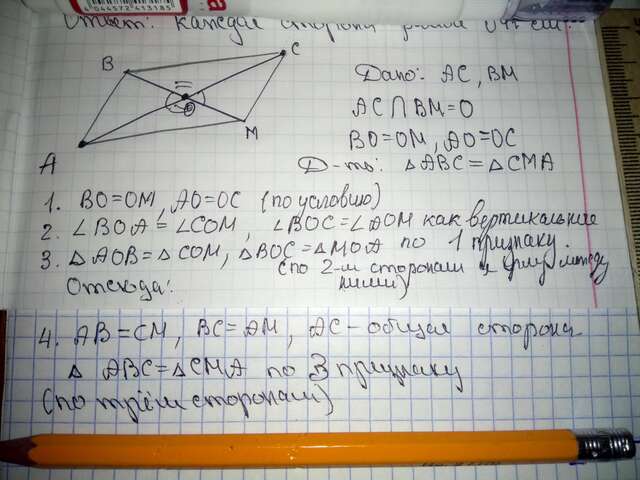 4044572413185
Ответ: каждая сторона
B
C
O
M
A
Дано: AC, BM
AC∩BM=O
BO=OM, AO=OC
Д-ть: △ABC=△CMA
1. BO=OM, AO=OC (по условию)
2. ∠BOA=∠COM, ∠BOC=∠AOM как вертикальные
3. △AOB=△COM, △BOC=△MOA по 1 признаку.
(по 2-м сторонам и углу между
ними)
Отсюда:
4. AB=CM, BC=AM, AC-общая сторона
△ ABC=△CMA по 3 признаку
(по трём сторонам)